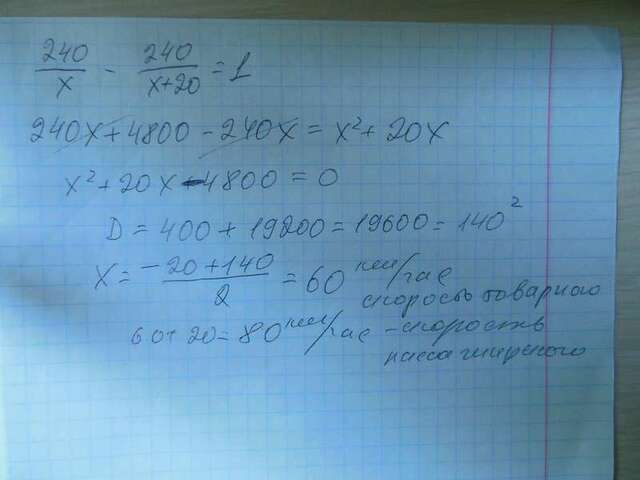 240/x - 240/x+20 = 1
240x + 4800 - 240x = x² + 20x
x² + 20x - 4800 = 0
D = 400 + 19200 = 19600 = 140²
x = -20+140/2 = 60 км/час
скорость товарного
60 + 20 = 80 км/час - скорость
пассажирского